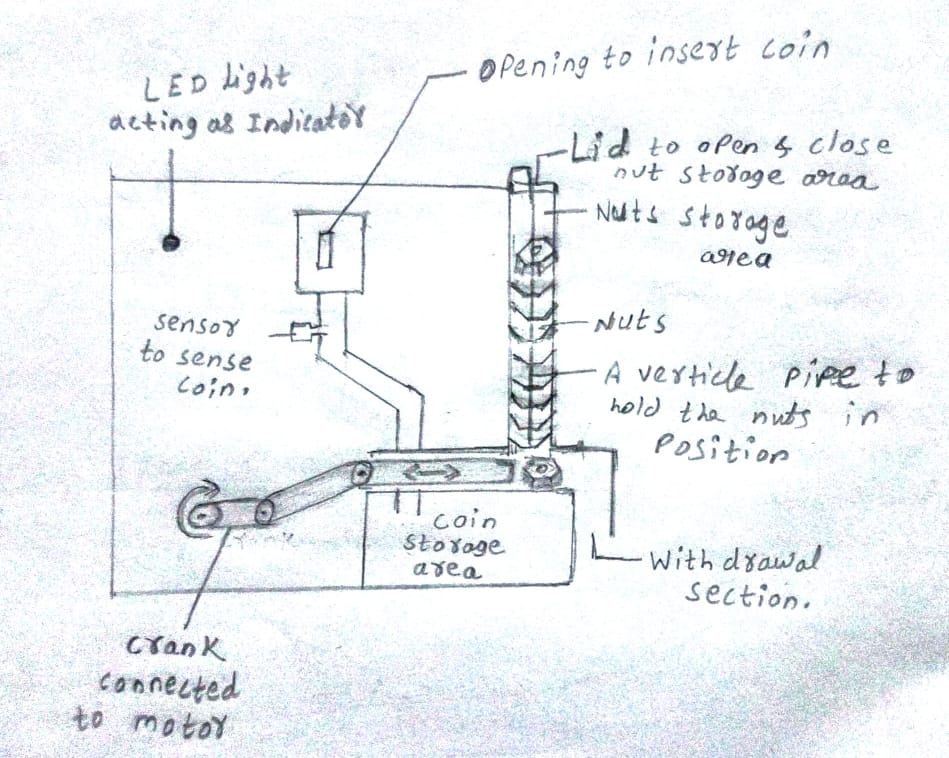 Opening to insert coin
LED Light
acting as Indicator
Lid to open & close
nut storage area
Nuts storage
area
sensor
to sense
coin.
Nuts
A verticle pipe to
hold the nuts in
Position
coin
storage
area
Withdrawal
section.
crank
connected
to motor